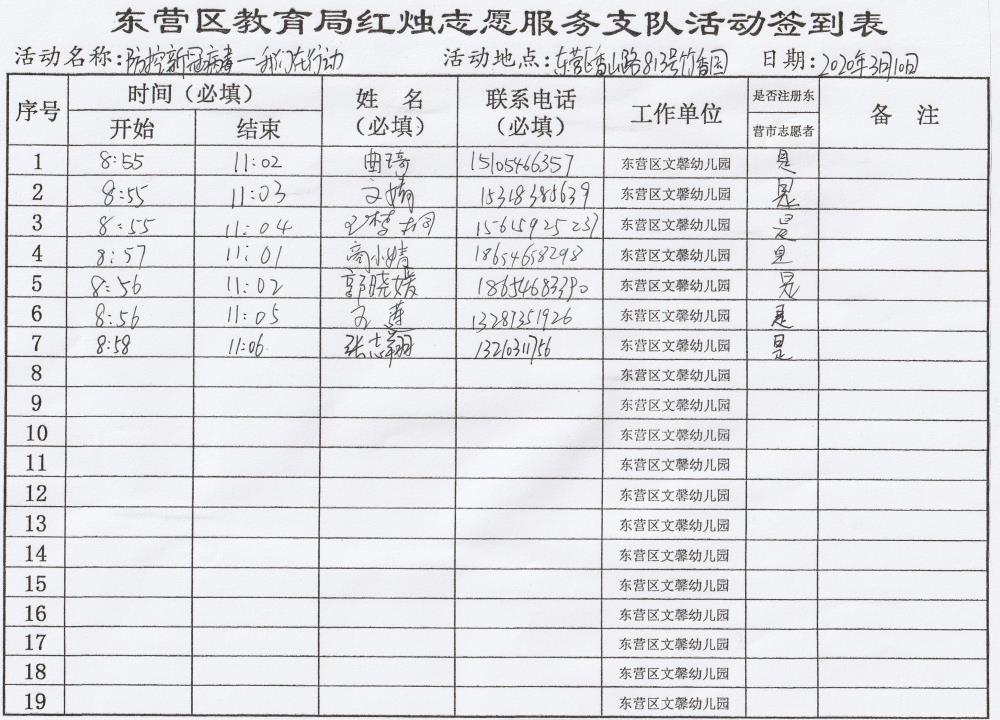 东营区教育局红烛志愿服务支队活动签到表
活动名称:防控新冠病毒—我们在行动 活动地点:东营区香山路813号竹香园 日期:2020年3月10日
序号 时间（必填） 姓 名（必填） 联系电话（必填） 工作单位 是否注册东营市志愿者 备 注
开始 结束
1 8:55 11:02 曲琦 15105466357 东营区文馨幼儿园 是
2 8:55 11:03 文婧 15318385639 东营区文馨幼儿园 是
3 8:55 11:04 15615925237 东营区文馨幼儿园 是
4 8:57 11:01 商小婧 18654658293 东营区文馨幼儿园 是
5 8:56 11:02 郭晓媛 18654683390 东营区文馨幼儿园 是
6 8:56 11:05 13287351926 东营区文馨幼儿园 是
7 8:58 11:06 张志翔 13210311756 东营区文馨幼儿园 是
8 东营区文馨幼儿园
9 东营区文馨幼儿园
10 东营区文馨幼儿园
11 东营区文馨幼儿园
12 东营区文馨幼儿园
13 东营区文馨幼儿园
14 东营区文馨幼儿园
15 东营区文馨幼儿园
16 东营区文馨幼儿园
17 东营区文馨幼儿园
18 东营区文馨幼儿园
19 东营区文馨幼儿园